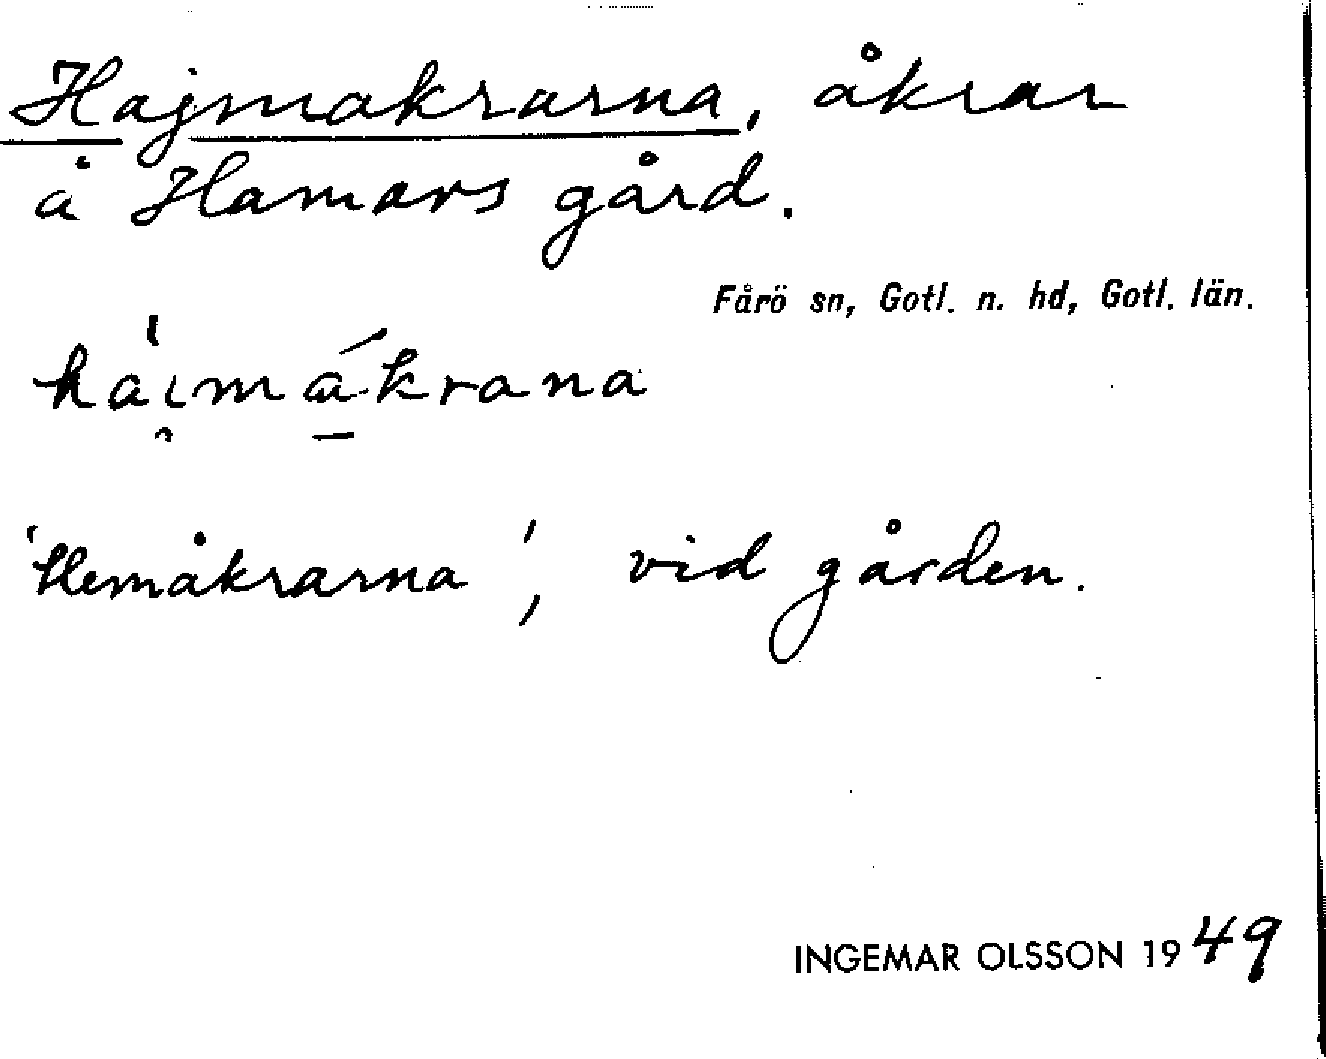 Hajmakrarna, åkrar
å Hamars gård.
Fårö sn, Gotl. n. hd, Gotl. län.
'Hemåkrarna', vid gården.
INGEMAR OLSSON 1949